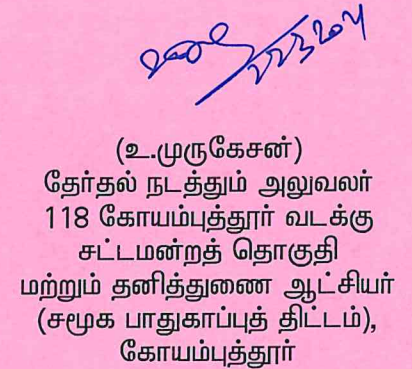 (உ.முருகேசன்)
தேர்தல் நடத்தும் அலுவலர்
118 கோயம்புத்தூர் வடக்கு
சட்டமன்றத் தொகுதி
மற்றும் தனித்துணை ஆட்சியர்
(சமூக பாதுகாப்புத் திட்டம்),
கோயம்புத்தூர்